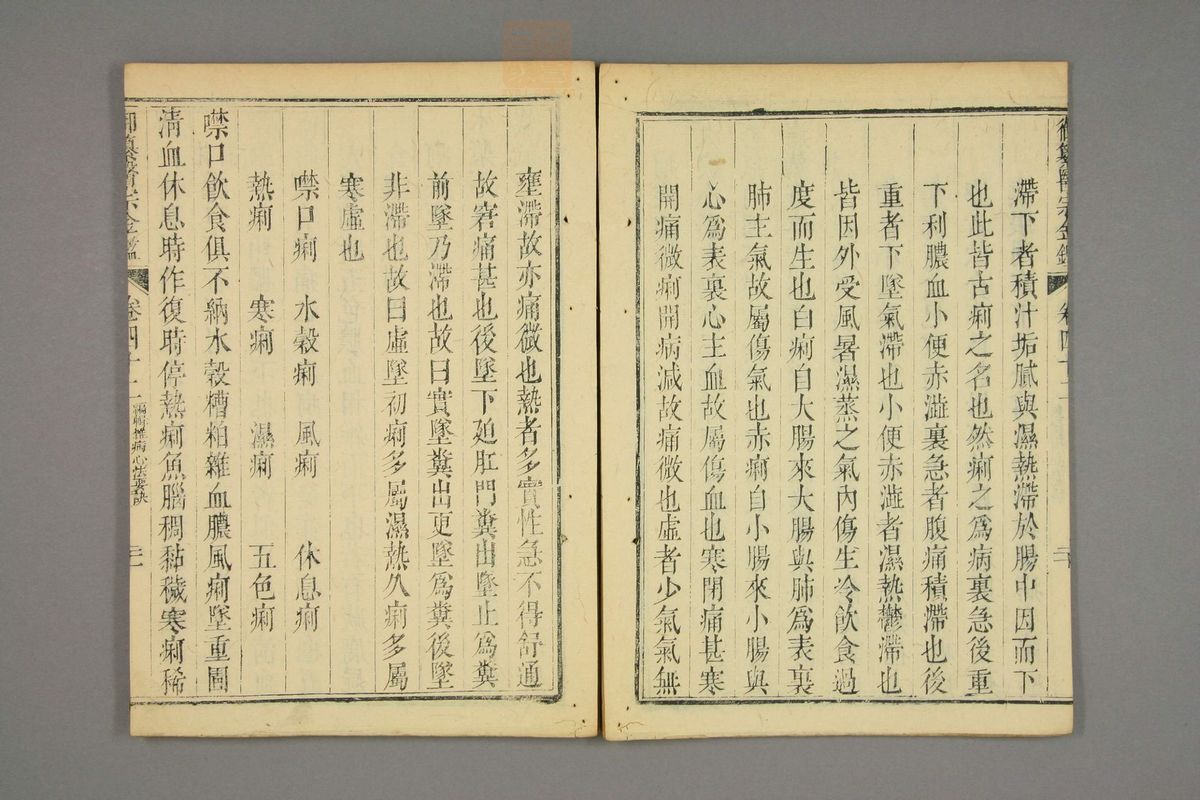 御纂醫宗金鑑 卷四十二 二十
滯下者積汁垢膩與濕熱滯於腸中因而下
也此皆古痢之名也然痢之爲病裏急後重
下利膿血小便赤澁裏急者腹痛積滯也後
重者下墜氣滯也小便赤澁者濕熱鬱滯也
皆因外受風暑濕蒸之氣內傷生冷飲食過
度而生也白痢自大腸來大腸與肺爲表裏
肺主氣故屬傷氣也赤痢自小腸來小腸與
心爲表裏心主血故屬傷血也寒閉痛甚寒
開痛微痢開病減故痛微也虛者少氣氣無
壅滯故亦痛微也熱者多實性急不得舒通
故窘痛甚也後墜下廹肛門糞出墜止爲糞
前墜乃滯也故曰實墜糞出更墜爲糞後墜
非滯也故曰虛墜初痢多屬濕熱久痢多屬
寒虛也
噤口痢 水穀痢 風痢 休息痢
熱痢 寒痢 濕痢 五色痢
噤口飲食俱不納水穀糟粕雜血膿風痢墜重圊
清血休息時作復時停熱痢魚腦稠黏穢寒痢稀
御纂醫宗金鑑 卷四十二 編輯雜病心法要訣